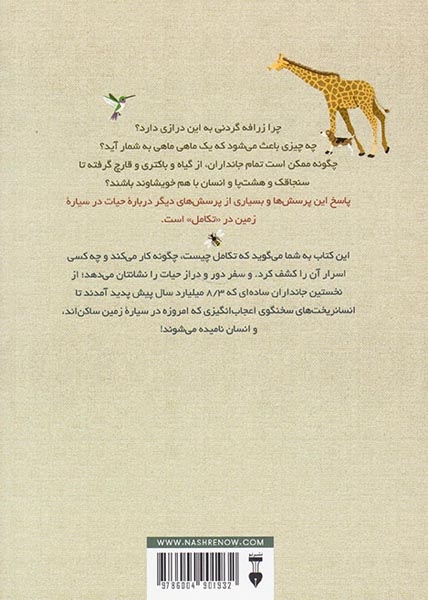 چرا زرافه گردنی به این درازی دارد؟
چه چیزی باعث می‌شود که یک ماهی ماهی به شمار آید؟
چگونه ممکن است تمام جانداران، از گیاه و باکتری و قارچ گرفته تا
سنجاقک و هشت‌پا و انسان با هم خویشاوند باشند؟
پاسخ این پرسش‌ها و بسیاری از پرسش‌های دیگر دربارهٔ حیات در سیارهٔ
زمین در «تکامل» است.
این کتاب به شما می‌گوید که تکامل چیست، چگونه کار می‌کند و چه کسی
اسرار آن را کشف کرد. و سفر دور و دراز حیات را نشانتان می‌دهد؛ از
نخستین جانداران ساده‌ای که ۸/۳ میلیارد سال پیش پدید آمدند تا
انسانریخت‌های سخنگوی اعجاب‌انگیزی که امروزه در سیارهٔ زمین ساکن‌اند،
و انسان نامیده می‌شوند!
WWW.NASHRENOW.COM
نشرنو
9 786004 901932